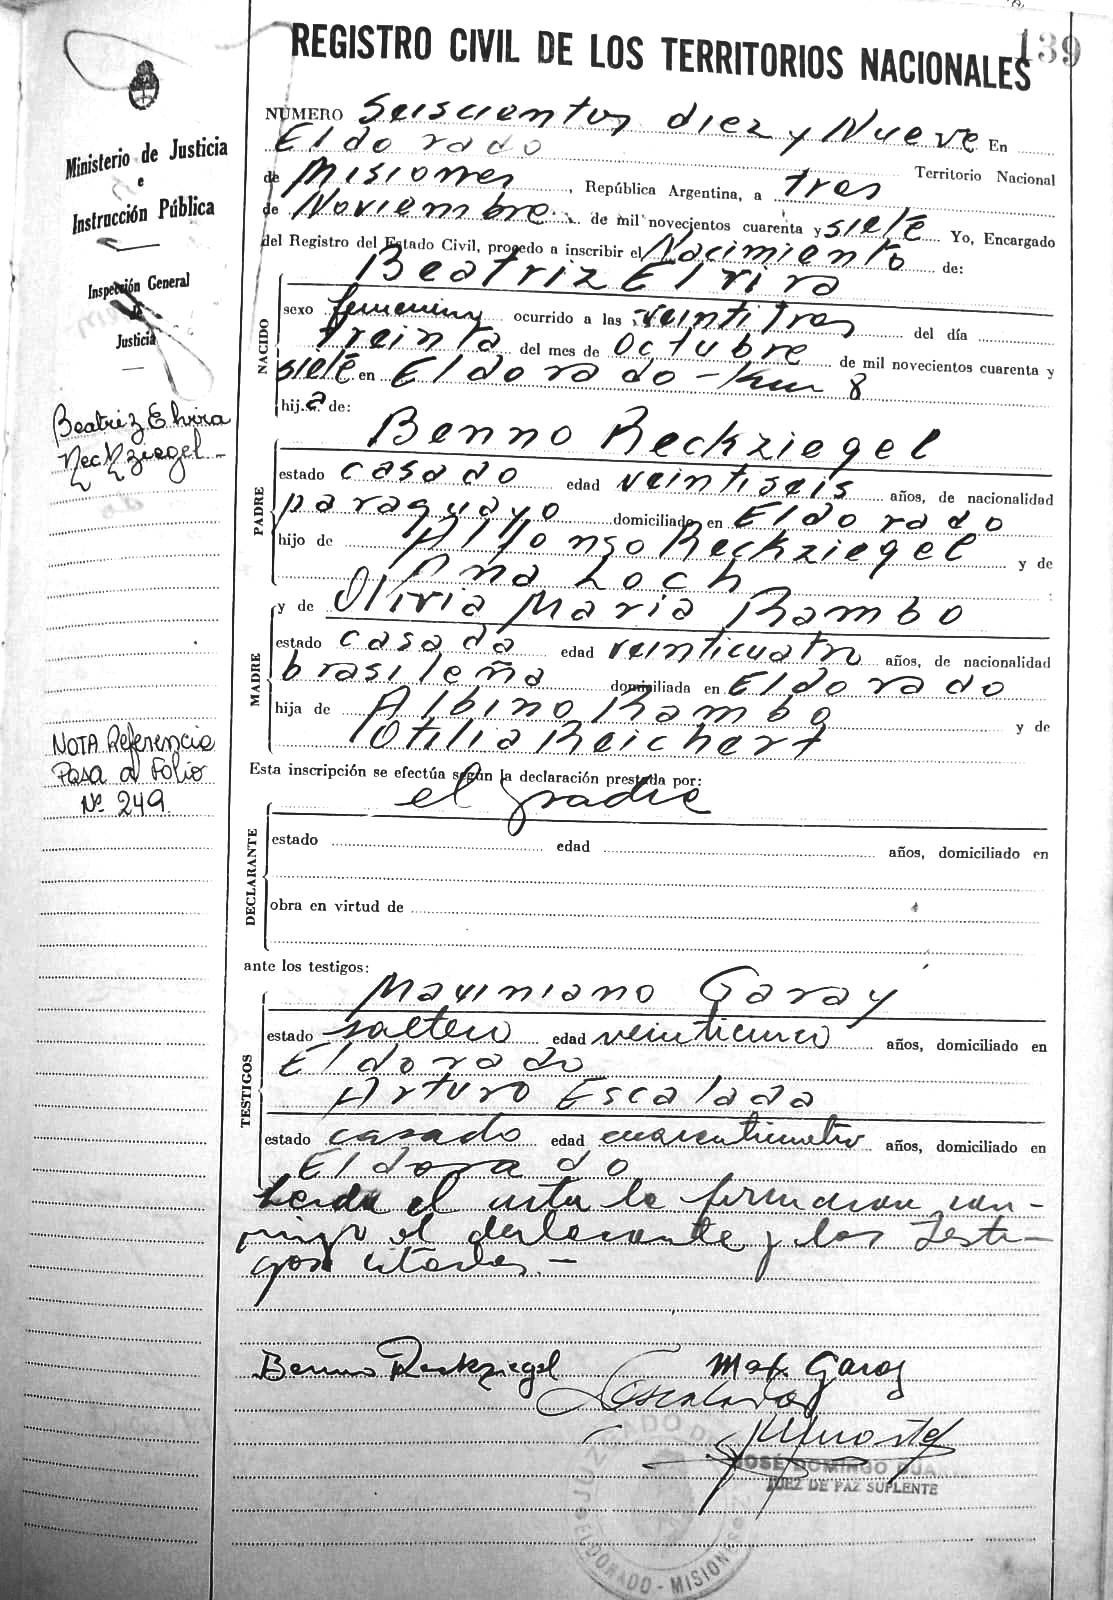 139
REGISTRO CIVIL DE LOS TERRITORIOS NACIONALES
Ministerio de Justicia
e
Instrucción Pública
Inspección General
de
Justicia
Beatriz Elvira
Reckziegel -
NOTA Referencia
Pasa al Folio
Nº 249.
NÚMERO Seiscientos diez y Nueve En
Eldorado Territorio Nacional
de Misiones, República Argentina, a tres
de Noviembre de mil novecientos cuarenta y siete Yo, Encargado
del Registro del Estado Civil, procedo a inscribir el Nacimiento de:
NACIDO
Beatriz Elvira
sexo femenino ocurrido a las veintitres del día
treinta del mes de Octubre de mil novecientos cuarenta y
siete en Eldorado - Km 8
hij.a de:
PADRE
Benno Reckziegel
estado casado edad veintiseis años, de nacionalidad
paraguayo domiciliado en Eldorado
hijo de Alfonso Reckziegel y de
Ana Loch
MADRE
y de Olivia Maria Rambo
estado casada edad veinticuatro años, de nacionalidad
brasileña domiciliada en Eldorado
hija de Albino Rambo y de
Otilia Reichert
Esta inscripción se efectúa según la declaración prestada por:
DECLARANTE
el padre
estado edad años, domiciliado en
obra en virtud de
ante los testigos:
TESTIGOS
Maximiano Garay
estado soltero edad veinticinco años, domiciliado en
Eldorado
Arturo Escalada
estado casado edad años, domiciliado en
Eldorado
Leida el acta la firmaron con-
migo el declarante y los testi-
gos citados. -
Benno Reckziegel Max. Garay
Escalada
JUZGADO DE
JOSÉ DOMINGO DUA
JUEZ DE PAZ SUPLENTE
ELDORADO - MISIONES